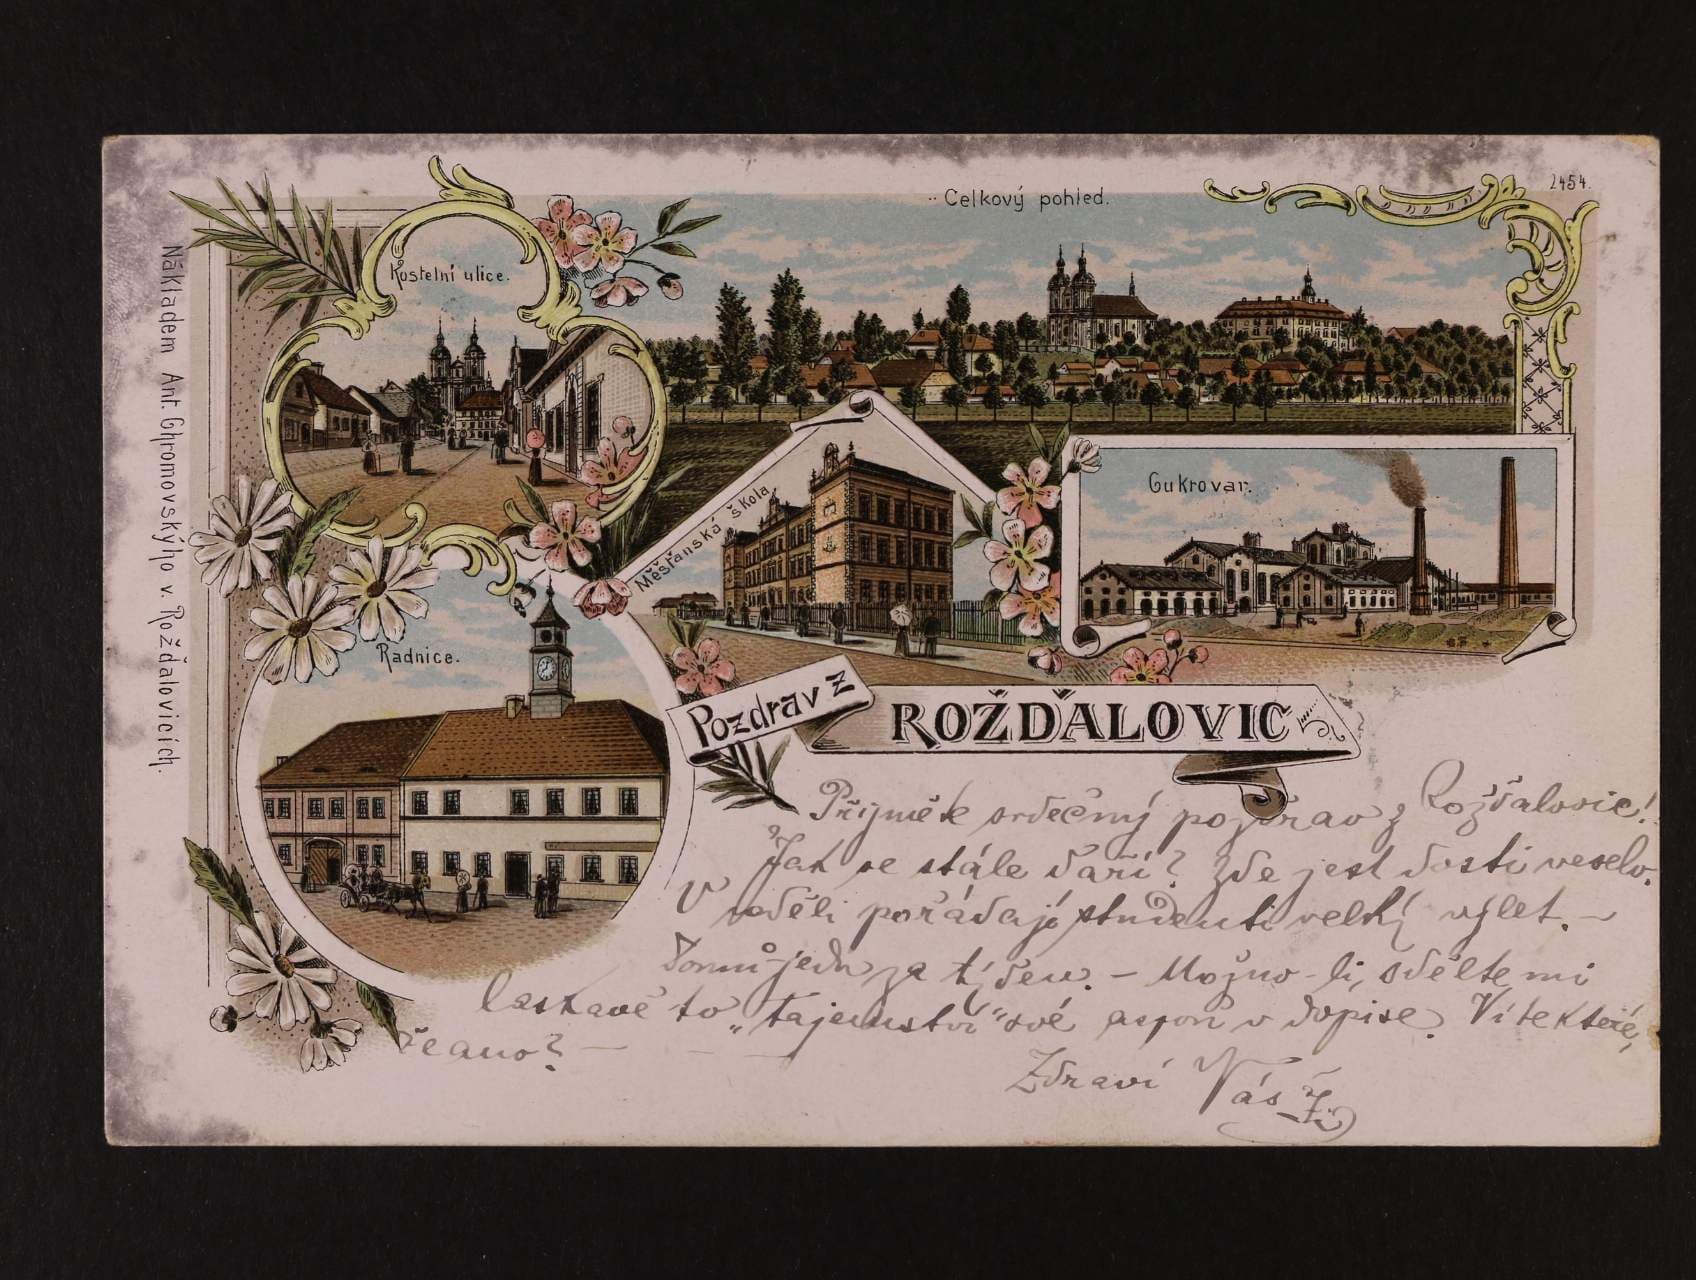 Celkový pohled.
2454.
Kostelní ulice.
Cukrovar.
Měšťanská škola.
Radnice.
Nákladem Ant. Chromovskýho v Rožďalovicích.
Pozdrav z
ROŽĎALOVIC
Přijměte srdečný pozdrav z Rožďalovic!
Jak se stále daří? Zde jest dosti veselo.
V neděli pořádají studenti velký výlet. –
Domů jedu za týden. – Možno-li, sdělte mi
laskavě to „tajemství" své aspoň v dopise. Víte které,
že ano? – – –
Zdraví Váš